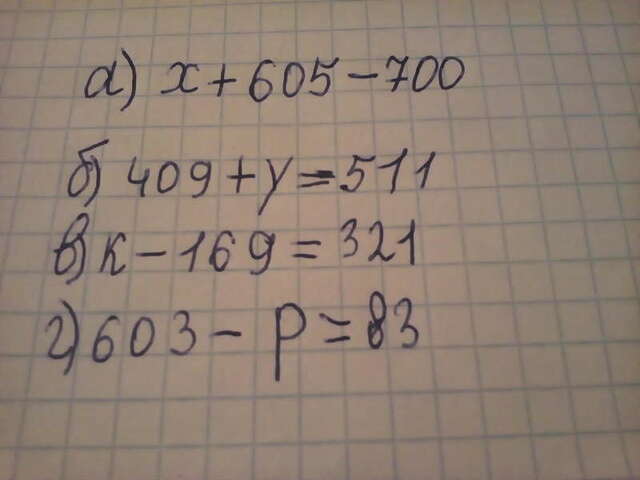 а) x + 605 – 700
б) 409 + y = 511
в) к – 169 = 321
г) 603 – p = 83